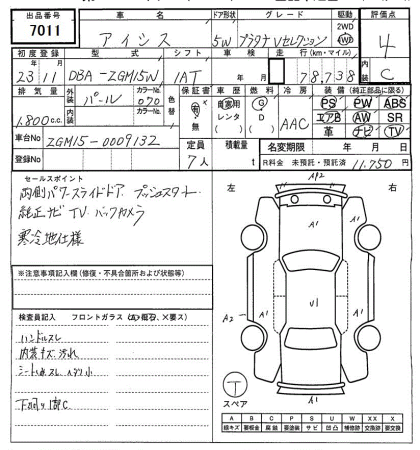 出品番号 車名 ドア形状 グレード 駆動 評価点
7011 アイシス 5W プラタナ Vセレクション 2WD 4WD 4
初度登録 型式 シフト 車検 走行(km・マイル) 内装
23 11 DBA-ZGM15W IAT 年 月 78,738 C
排気量 外装 カラーNo. 色替 保証書 車歴 燃料 冷房 装備(純正部品に限る)
1,800cc パール 070 有・無 自家用 レンタ G D AAC PS PW ABS
内装 カラーNo. エアB AW SR
革 ナビ TV
車台No ZGM15-0009132 定員 積載量 名変期限 年 月 日
登録No 7人 t R料金 未預託・預託済 11,750円
セールスポイント
両側パワースライドドア プッシュスタート
純正ナビ TV バックカメラ
寒冷地仕様
左 右
AP2
A1
A1
A1
A2
U1
A1
A1
※注意事項記入欄(修復・不具合箇所および状態等)
検査員記入 フロントガラス(△:飛石、×要ス)
ハンドルスレ
内装キズ、汚れ
T
スペア
A B C P S U W X XX
線キズ 要板金 腐蝕 要塗装 サビ 凹凸 補修跡 交換跡 要交換